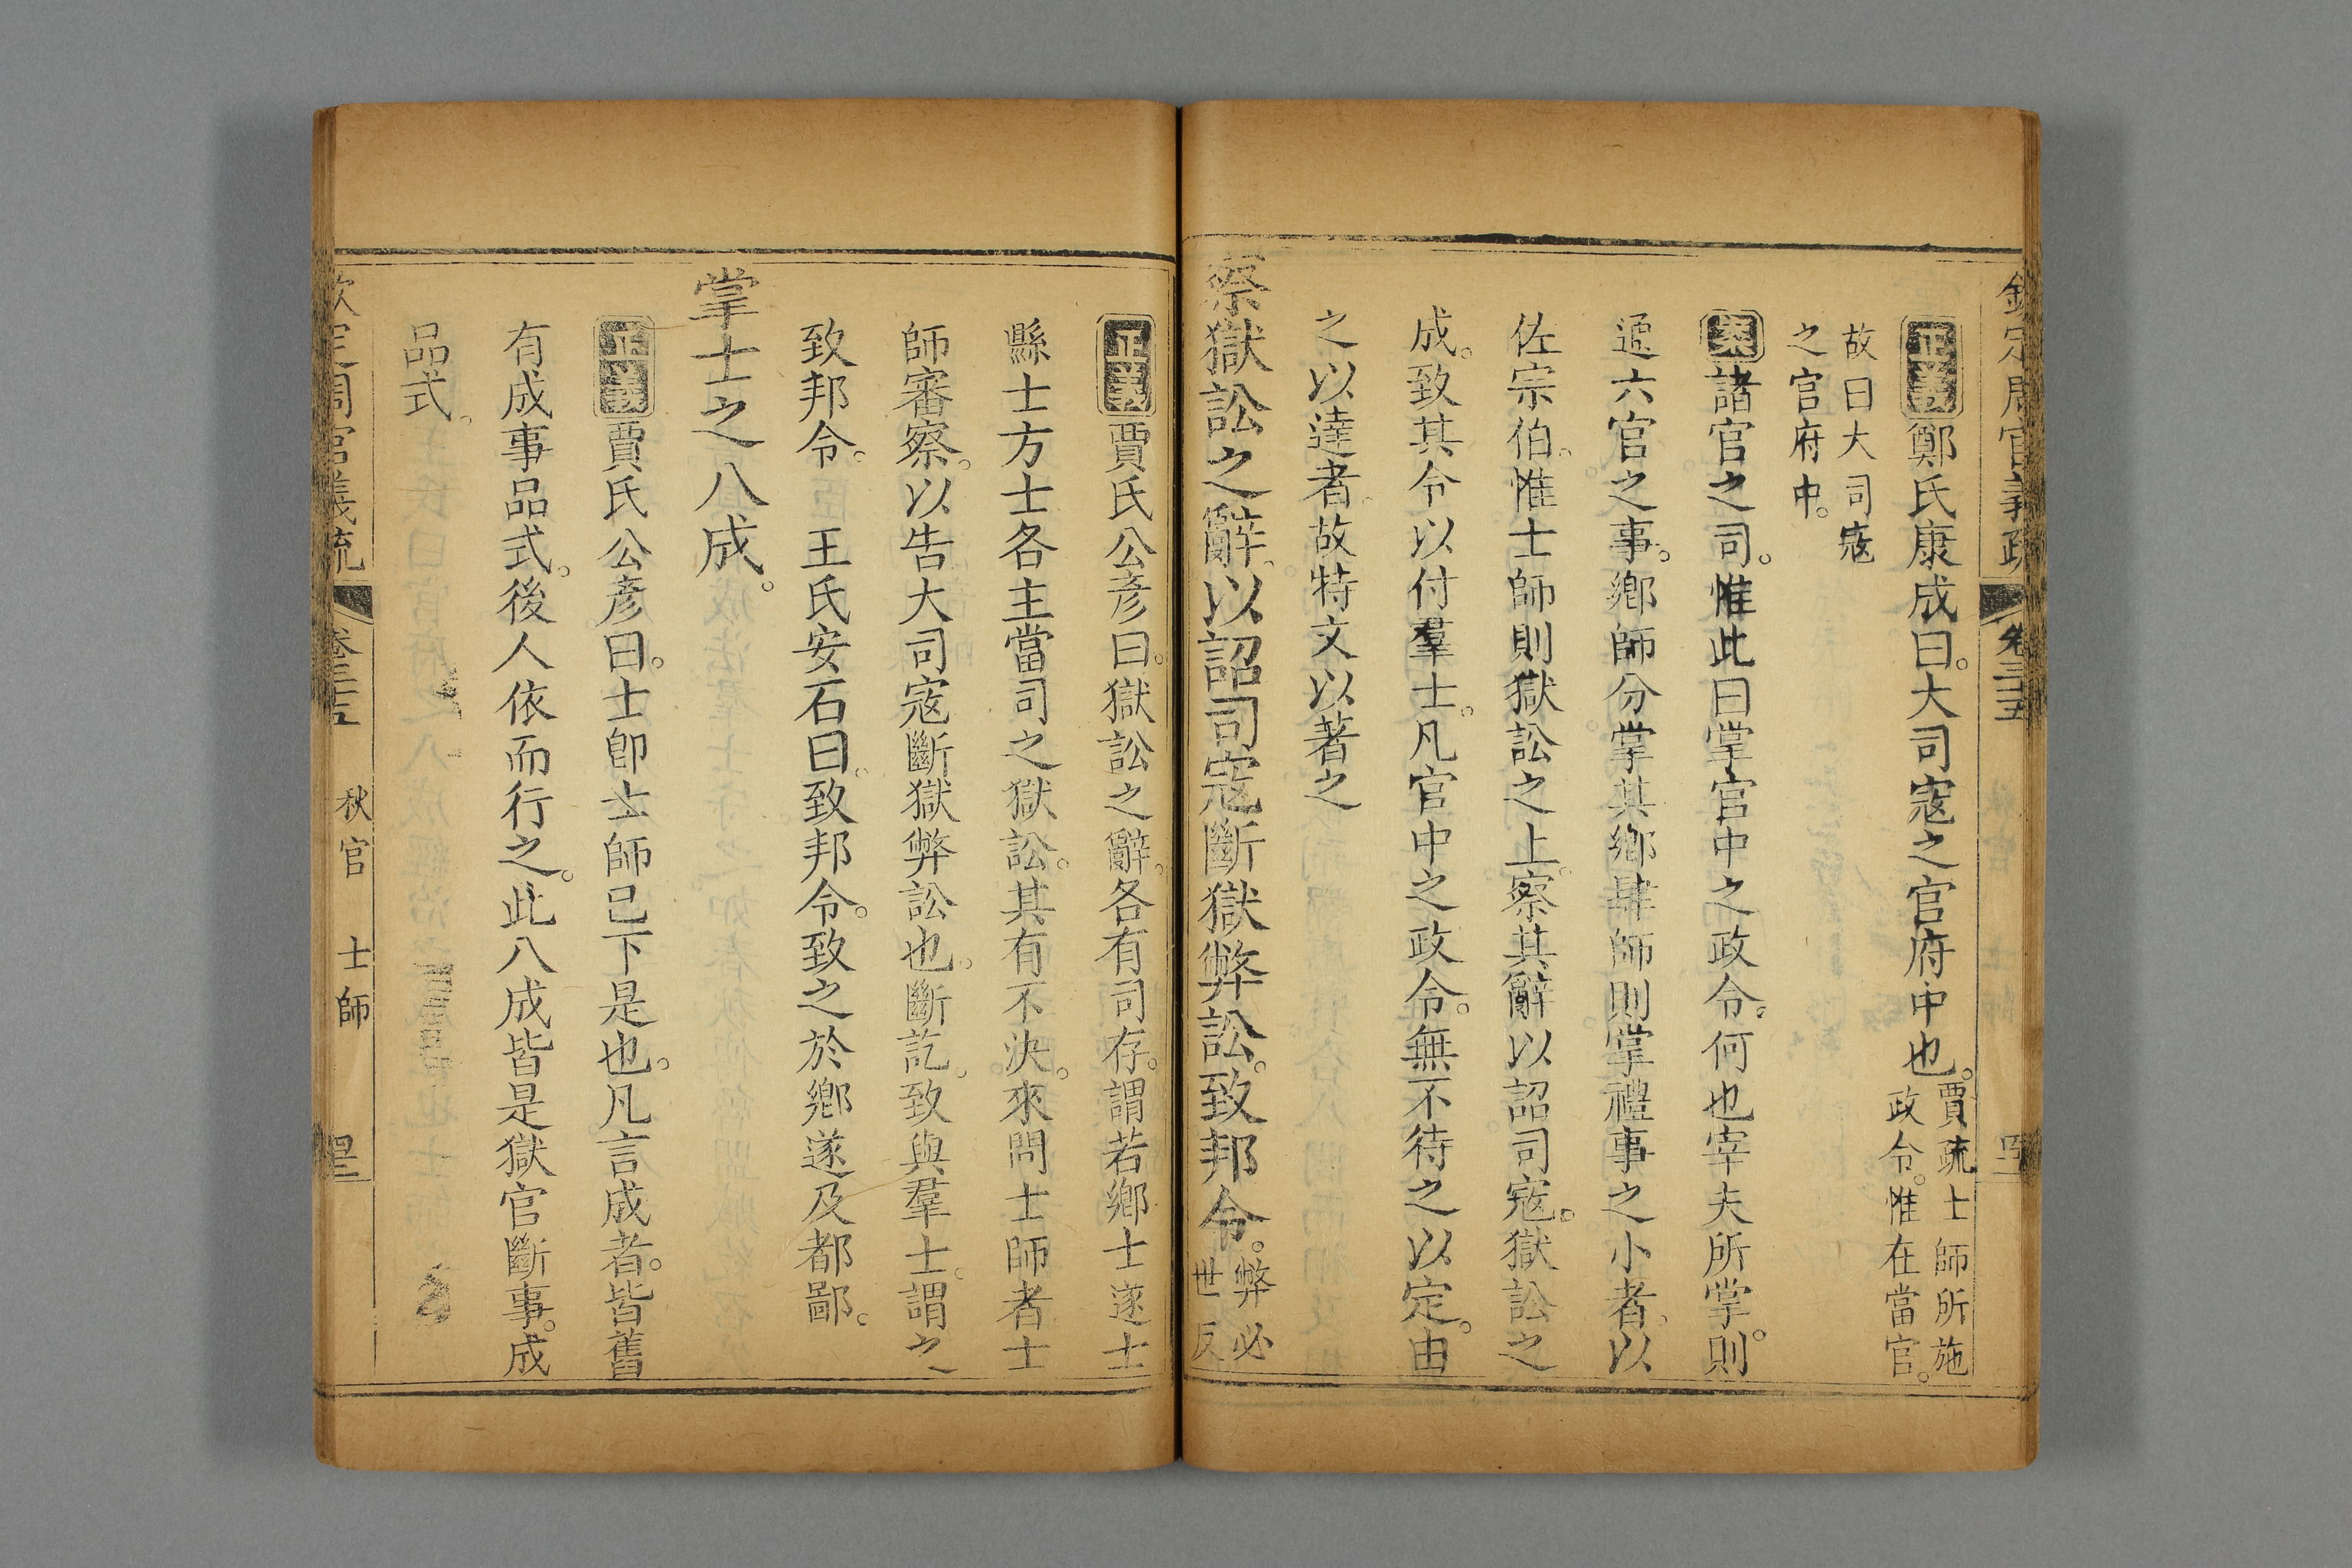 欽定周官義疏 卷三十五
正義鄭氏康成曰。大司寇之官府中也。賈疏士師所施政令。惟在當官。
故曰大司寇之官府中。
案諸官之司。惟此曰掌官中之政令。何也宰夫所掌。則
通六官之事。鄉師分掌其鄉肆師則掌禮事之小者。以
佐宗伯。惟士師則獄訟之上。察其辭以詔司寇。獄訟之
成。致其令以付羣士。凡官中之政令。無不待之以定。由
之以達者。故特文以著之
察獄訟之辭。以詔司寇斷獄弊訟。致邦令。弊必世反
正義賈氏公彥曰。獄訟之辭。各有司存。謂若鄉士遂士
縣士方士各主當司之獄訟。其有不決。來問士師者士
師審察。以告大司寇斷獄弊訟也。斷訖。致與羣士。謂之
致邦令。 王氏安石曰。致邦令。致之於鄉遂及都鄙。
掌士之八成。
正義賈氏公彥曰。士卽士師已下是也。凡言成者。皆舊
有成事品式。後人依而行之。此八成皆是獄官斷事。成
品式。
欽定周官義疏 卷三十五 秋官 士師